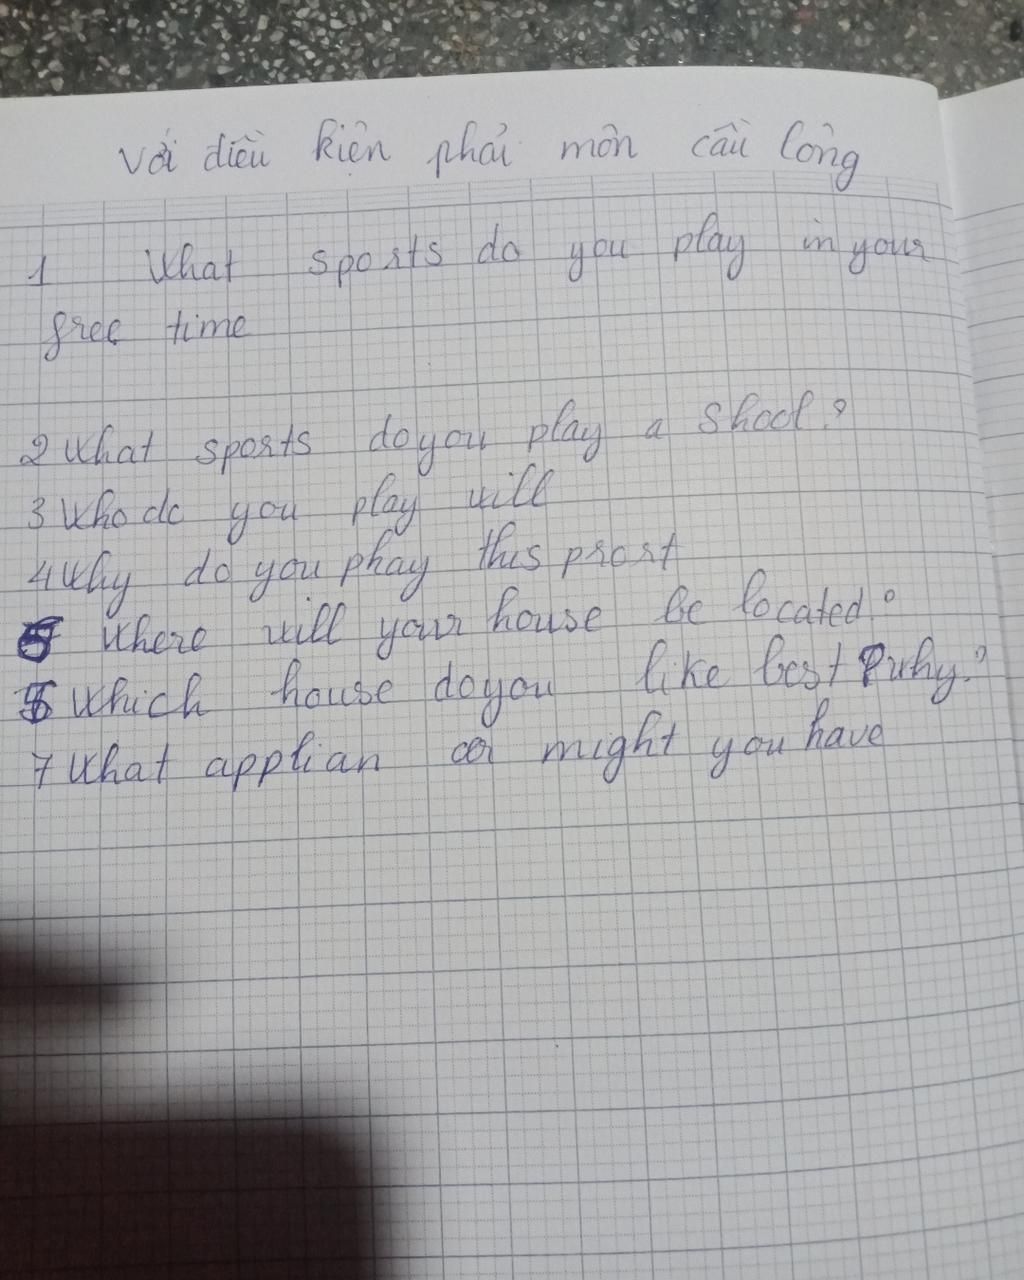 Với điều kiện phải môn cầu lông
1 What sports do you play in your
free time
2 What sports do you play a Shool?
3 Who do you play will
4 Why do you phay this prost
5 Where will your house be located?
6 Which house do you like best Pwhy?
7 What applian cer might you have